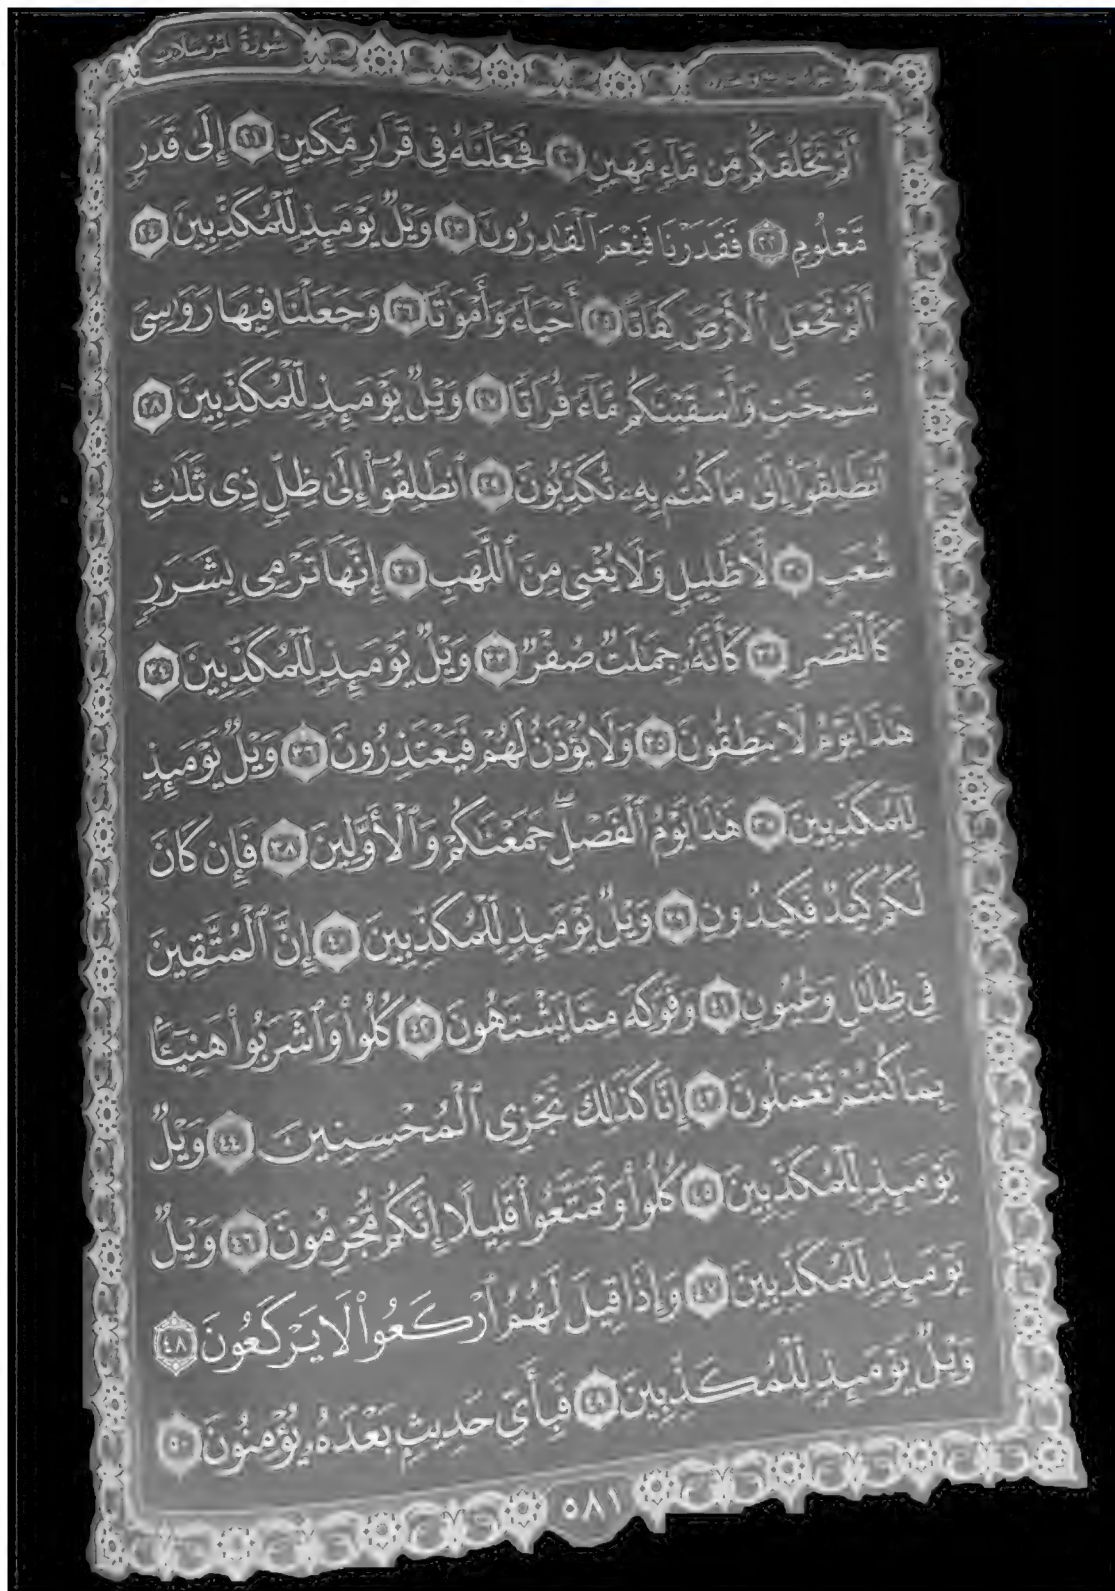 سُورَةُ المُرْسَلَاتِ
أَلَمْ نَخْلُقكُّم مِّن مَّآءٍ مَّهِينٍ ٢٠ فَجَعَلْنَٰهُ فِى قَرَارٍ مَّكِينٍ ٢١ إِلَىٰ قَدَرٍ
مَّعْلُومٍ ٢٢ فَقَدَرْنَا فَنِعْمَ ٱلْقَٰدِرُونَ ٢٣ وَيْلٌ يَوْمَئِذٍ لِّلْمُكَذِّبِينَ ٢٤
أَلَمْ نَجْعَلِ ٱلْأَرْضَ كِفَاتًا ٢٥ أَحْيَآءً وَأَمْوَٰتًا ٢٦ وَجَعَلْنَا فِيهَا رَوَٰسِىَ
شَٰمِخَٰتٍ وَأَسْقَيْنَٰكُم مَّآءً فُرَاتًا ٢٧ وَيْلٌ يَوْمَئِذٍ لِّلْمُكَذِّبِينَ ٢٨
ٱنطَلِقُوٓا۟ إِلَىٰ مَا كُنتُم بِهِۦ تُكَذِّبُونَ ٢٩ ٱنطَلِقُوٓا۟ إِلَىٰ ظِلٍّ ذِى ثَلَٰثِ
شُعَبٍ ٣٠ لَّا ظَلِيلٍ وَلَا يُغْنِى مِنَ ٱللَّهَبِ ٣١ إِنَّهَا تَرْمِى بِشَرَرٍ
كَٱلْقَصْرِ ٣٢ كَأَنَّهُۥ جِمَٰلَتٌ صُفْرٌ ٣٣ وَيْلٌ يَوْمَئِذٍ لِّلْمُكَذِّبِينَ ٣٤
هَٰذَا يَوْمُ لَا يَنطِقُونَ ٣٥ وَلَا يُؤْذَنُ لَهُمْ فَيَعْتَذِرُونَ ٣٦ وَيْلٌ يَوْمَئِذٍ
لِّلْمُكَذِّبِينَ ٣٧ هَٰذَا يَوْمُ ٱلْفَصْلِ ۖ جَمَعْنَٰكُمْ وَٱلْأَوَّلِينَ ٣٨ فَإِن كَانَ
لَكُمْ كَيْدٌ فَكِيدُونِ ٣٩ وَيْلٌ يَوْمَئِذٍ لِّلْمُكَذِّبِينَ ٤٠ إِنَّ ٱلْمُتَّقِينَ
فِى ظِلَٰلٍ وَعُيُونٍ ٤١ وَفَوَٰكِهَ مِمَّا يَشْتَهُونَ ٤٢ كُلُوا۟ وَٱشْرَبُوا۟ هَنِيٓـًٔۢا
بِمَا كُنتُمْ تَعْمَلُونَ ٤٣ إِنَّا كَذَٰلِكَ نَجْزِى ٱلْمُحْسِنِينَ ٤٤ وَيْلٌ
يَوْمَئِذٍ لِّلْمُكَذِّبِينَ ٤٥ كُلُوا۟ وَتَمَتَّعُوا۟ قَلِيلًا إِنَّكُم مُّجْرِمُونَ ٤٦ وَيْلٌ
يَوْمَئِذٍ لِّلْمُكَذِّبِينَ ٤٧ وَإِذَا قِيلَ لَهُمُ ٱرْكَعُوا۟ لَا يَرْكَعُونَ ٤٨
وَيْلٌ يَوْمَئِذٍ لِّلْمُكَذِّبِينَ ٤٩ فَبِأَىِّ حَدِيثٍۭ بَعْدَهُۥ يُؤْمِنُونَ ٥٠
٥٨١